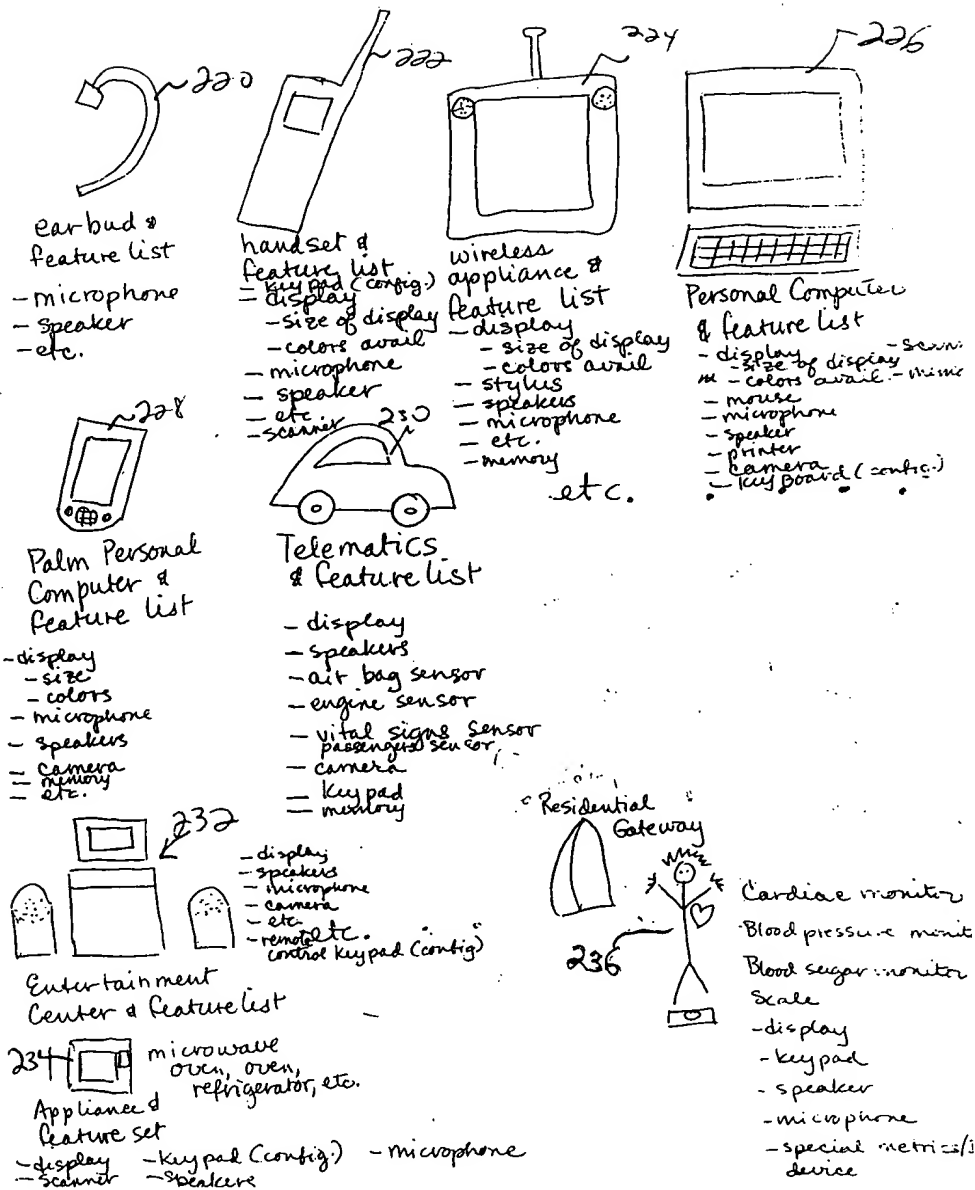 220
ear bud &
feature list
- microphone
- speaker
- etc.
222
handset &
feature list
- keypad (config.)
- display
- size of display
- colors avail
- microphone
- speaker
- etc.
- scanner
224
wireless
appliance &
feature list
- display
- size of display
- colors avail
- stylus
- speakers
- microphone
- etc.
- memory
etc.
226
Personal Computer
& feature list
- display
- size of display
- colors avail.
- mouse
- microphone
- speaker
- printer
- camera
- keyboard (config.)
228
Palm Personal
Computer &
feature list
- display
- size
- colors
- microphone
- speakers
- camera
- memory
- etc.
230
Telematics
& feature list
- display
- speakers
- air bag sensor
- engine sensor
- vital signs sensor
passengers sensor
- camera
- keypad
- memory
232
- display
- speakers
- microphone
- camera
- etc.
- remote etc.
control keypad (config)
Entertainment
Center & feature list
234
microwave
oven, oven,
refrigerator, etc.
Appliance &
feature set
- display - keypad (config.) - microphone
- scanner - speakers
Residential
Gateway
236
Cardiac monitor
Blood pressure monit
Blood sugar monitor
Scale
- display
- keypad
- speaker
- microphone
- special
device